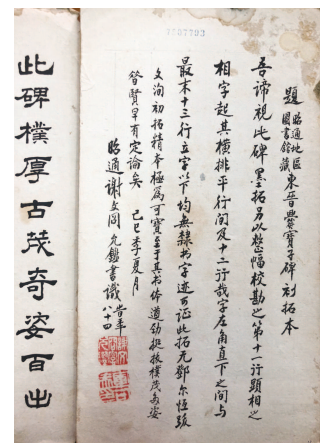 題昭通地區
圖書館藏東晉爨寶子碑初拓本
吾諦視此碑墨拓另以整幅校勘之第十一行顕相之
相字起其橫排平行間及十二行哉字左角直下之間与
最末十三行立字以下均無隸书字迹可证此拓尤鄧尔恒跋
文洵初拓精本極為可寶至于其书体遒勁挺拔樸茂多姿
昝賢早有定論矣 己巳季夏月
昭通謝文閣允鑑書識 八十四
此碑樸厚古茂奇姿百出